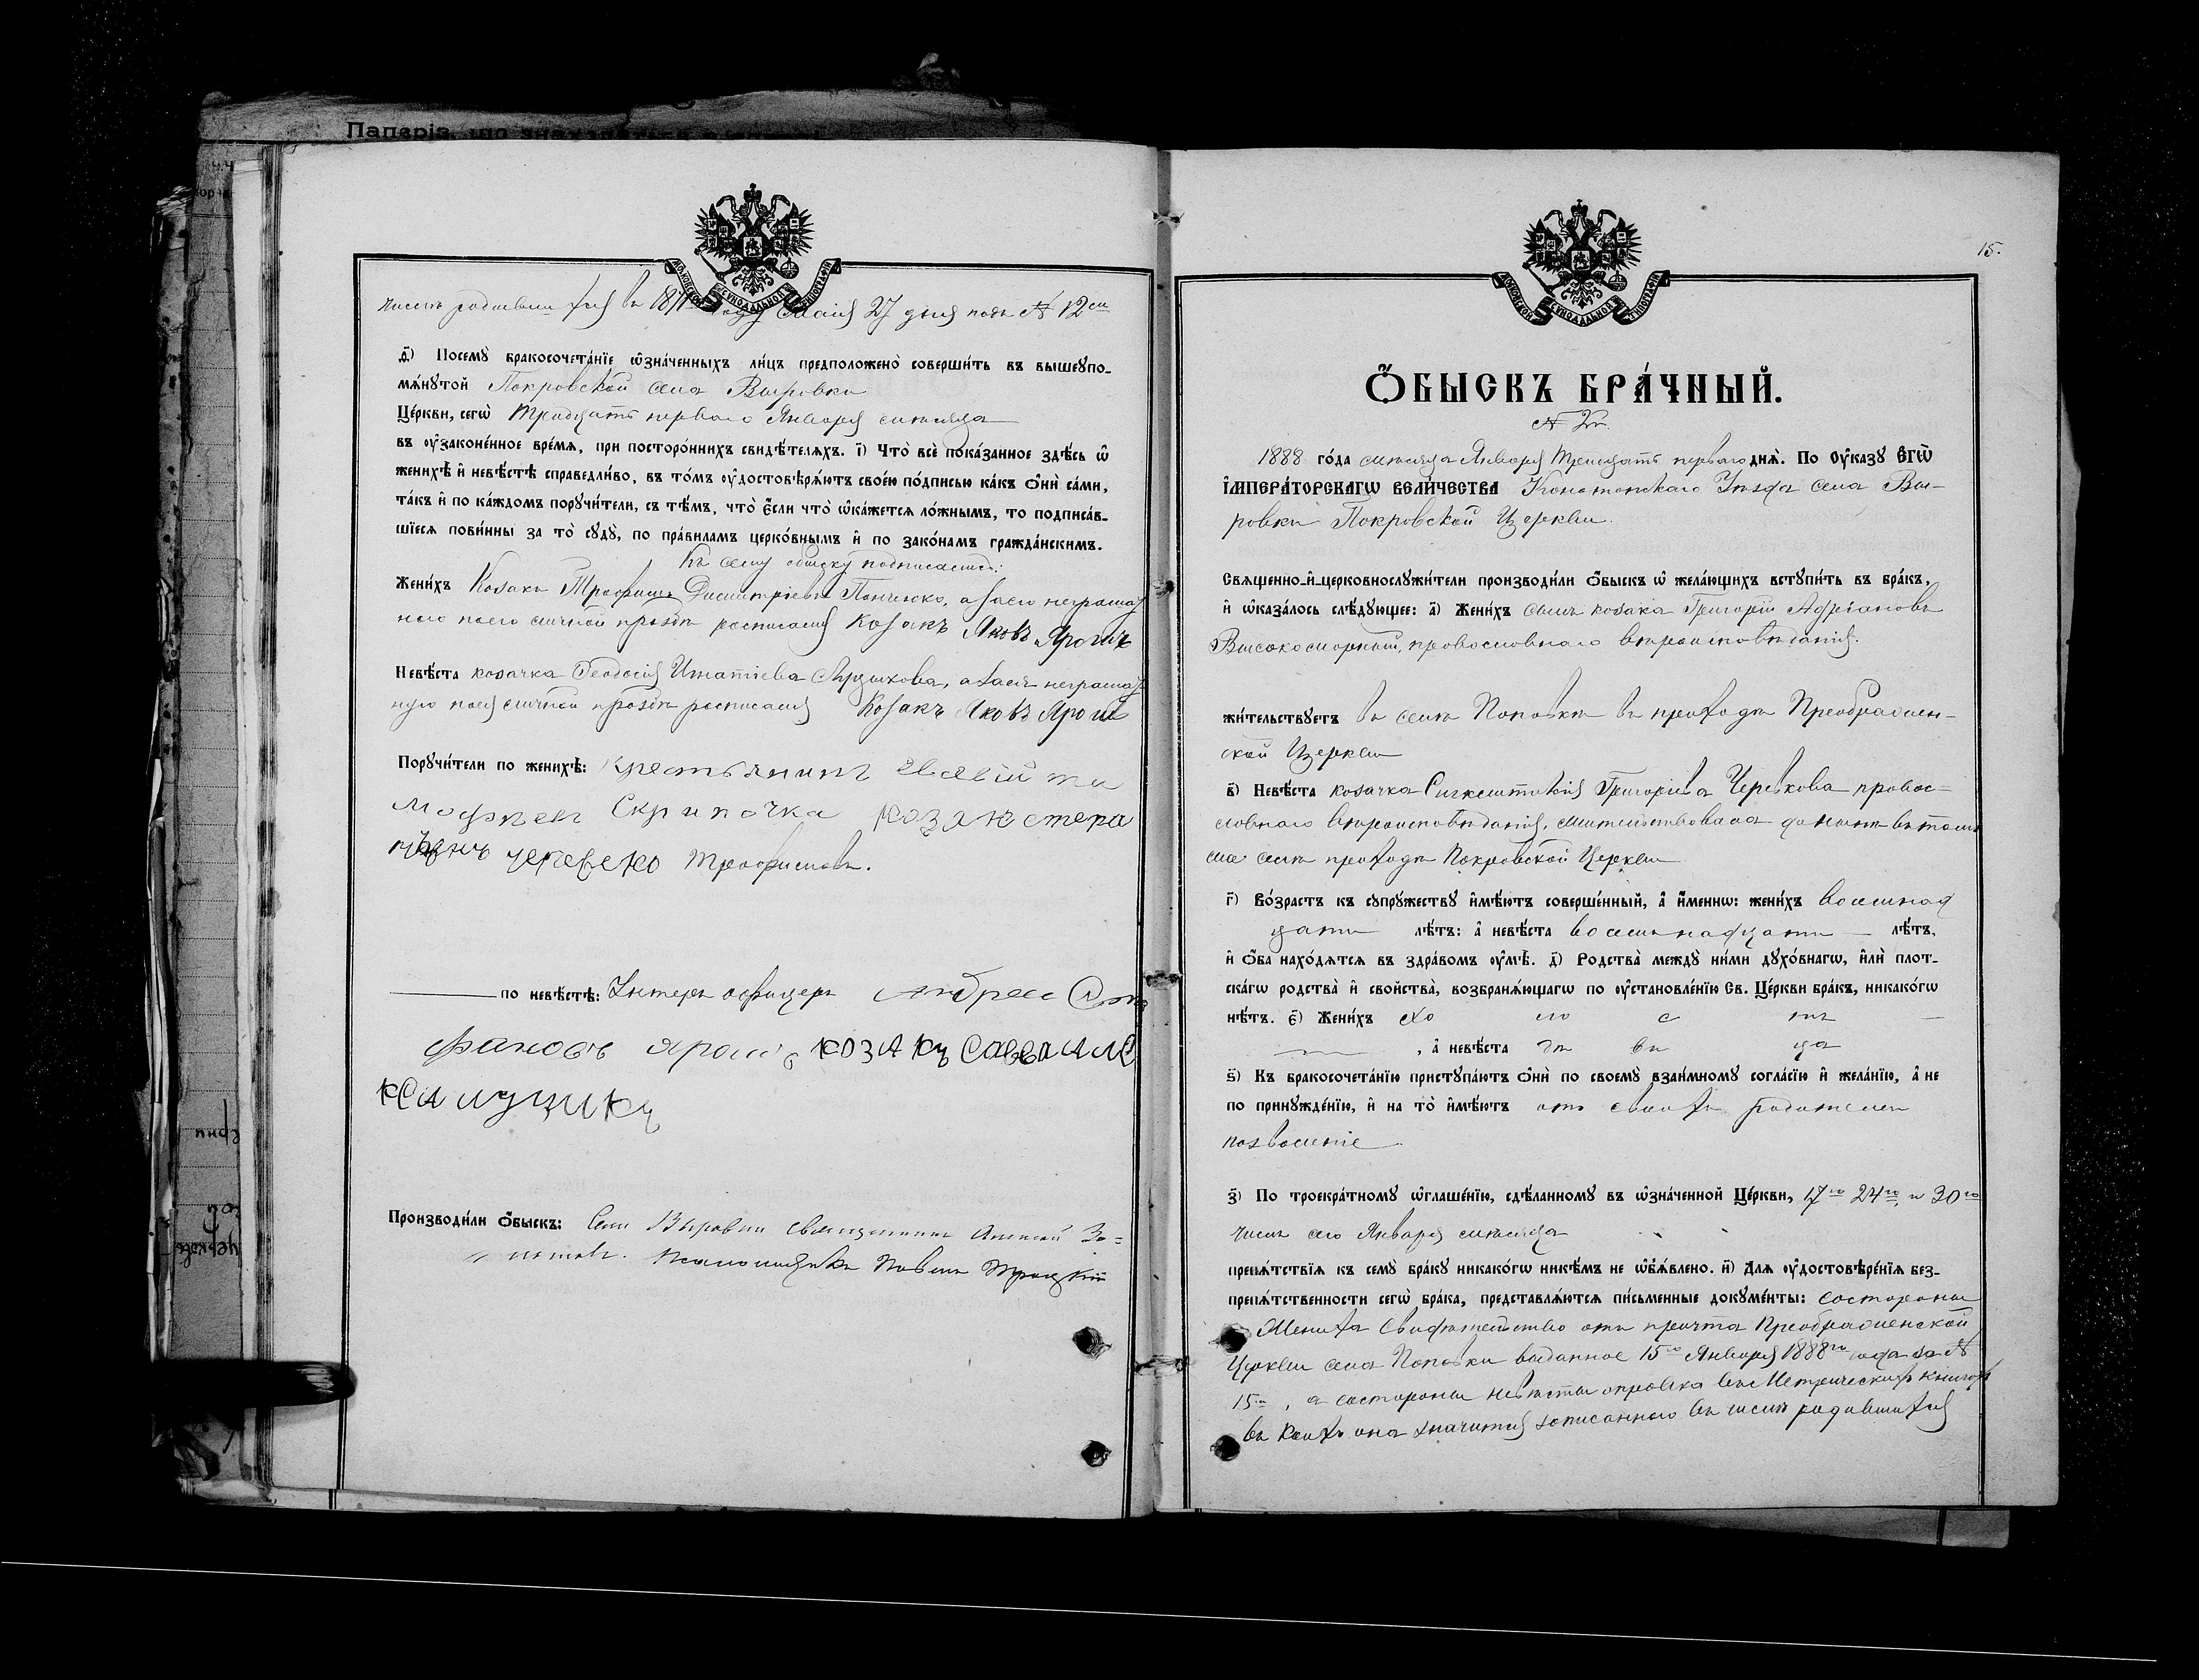 Папєрів, що знаходяться
числѣ родившихся въ 1871 году Маія 27 дня подъ № 12ем
ѳ҃) Посемꙋ̀ бракосочета́нїе ѡ҆зна́ченныхъ ли́цъ предположено̀ соверши́ть въ вышеꙋпо-
мѧ́нутой Покровской села Вировки
Це́ркви, сегѡ̀ Тридцать первого Января мѣсяца
въ ᲂу҆законе́нное вре́мѧ, при посторо́ннихъ свидѣ́телѧхъ. і҃) Что̀ всѐ пока́занное здѣ́сь ѡ҆
женихѣ̀ и҆ невѣ́стѣ справедли́во, въ то́мъ ᲂу҆достовѣрѧ́ютъ свое́ю по́дписью ка́къ ѻ҆нѝ са́ми,
та́къ и҆ по ка́ждомъ поручи́тели, съ тѣ́мъ, что̀ є҆́сли что̀ ѡ҆ка́жетсѧ ло́жнымъ, то подписа́в-
шїесѧ пови́нны за то̀ сꙋдꙋ̀, по пра́виламъ церко́внымъ и҆ по зако́намъ гражда́нскимъ.
Къ сему обыску подписались:
Жени́хъ Козакъ Трофимъ Димитріевъ, а за его неграмот
ного по его личной прозбѣ росписался Козакъ Яковъ Ярошъ
Невѣ́ста козачка Феодосія Игнатіева, а за ея неграмот
ную по ея личной прозбѣ росписался Козакъ Яковъ Ярошъ
Порꙋчи́тели по женихѣ̀: крестьянинъ Евсѣій ти
мофѣевъ Скрипочка козакъ
Черевко Трофимовъ.
по невѣ́стѣ: Унтеръ офицеръ Андрей Сте
фановъ Ярошъ козакъ Савва Але
ксѣ
Производи́ли ѻ҆́быскъ: Села Вировки священникъ Алексѣй
Псаломщикъ Павелъ Троцкій
15.
Ѻ҆́БЫСКЪ БРА́ЧНЫЙ.
№
1888 го́да мѣсяца Января Тридцать первого днѧ̀. По ᲂу҆ка́зꙋ Є҆гѡ̀
І҆мпера́торскагѡ Вели́чества Конотопского Уѣзда села Ви-
ровки Покровской Церкви.
Свѧще́нно-и҆-церковнослꙋжи́тели производи́ли ѻ҆́быскъ ѡ҆ жела́ющихъ встꙋпи́ть въ бра́къ,
и҆ ѡ҆каза́лось слѣ́дꙋющее: а҃) Жени́хъ сынъ козака Григорій Адріановъ
Високоморный, провославного вѣроисповѣданія.
жи́тельствꙋетъ въ селѣ Поповкѣ въ приходѣ Преображен-
ской Церкви
в҃) Невѣ́ста козачка Сигклитикія Григоріева Черевкова провос-
ловного вѣроисповѣданія, жительствовала до нынѣ въ томъ
же селѣ прихода Покровской Церкви
г҃) Во́зрастъ къ сꙋпрꙋ́жествꙋ и҆мѣ́ютъ соверше́нный, а҆ и҆́меннѡ: жени́хъ восемнад
цати лѣ́тъ: а҆ невѣ́ста восемнадцати лѣ́тъ,
и҆ ѻ҆́ба нахо́дѧтсѧ въ здра́вомъ ᲂу҆мѣ̀. д҃) Родства̀ междꙋ ни́ми дꙋхо́внагѡ, и҆лѝ плот-
ска́гѡ родства̀ и҆ сво́йства, возбранѧ́ющагѡ по ᲂу҆становле́нїю Св. Це́ркви бра́къ, никако́гѡ
нѣ́тъ. є҃) Жени́хъ хо ло с тъ
, а҆ невѣ́ста дѣ ви ца
ѕ҃) Къ бракосочета́нїю пристꙋпа́ютъ ѻ҆нѝ по своемꙋ̀ взаи́мномꙋ согла́сїю и҆ жела́нїю, а҆ не
по принꙋжде́нїю, и҆ на то̀ и҆мѣ́ютъ отъ своихъ родителей
позволеніе
з҃) По троекра́тномꙋ ѡ҆глаше́нїю, сдѣ́ланномꙋ въ ѡ҆зна́ченной Це́ркви, 17го 24го, и 30го
числъ сего Января мѣсяца
препѧ́тствїѧ къ семꙋ̀ бра́кꙋ никако́гѡ никѣ́мъ не ѡ҆б̾ѧ́влено. и҃) Длѧ ᲂу҆достовѣре́нїѧ без-
препѧ́тственности сегѡ̀ бра́ка, представлѧ́ютсѧ пи́сьменные докꙋме́нты: состороны
Жениха Свидѣтельство отъ причта Преображенской
Церкви села Поповки выданное 15го Января 1888го года за №
15м, а состороны невѣсты справка въ Метрическихъ книгахъ
въ коихъ она значится записанною въ числѣ родившихся